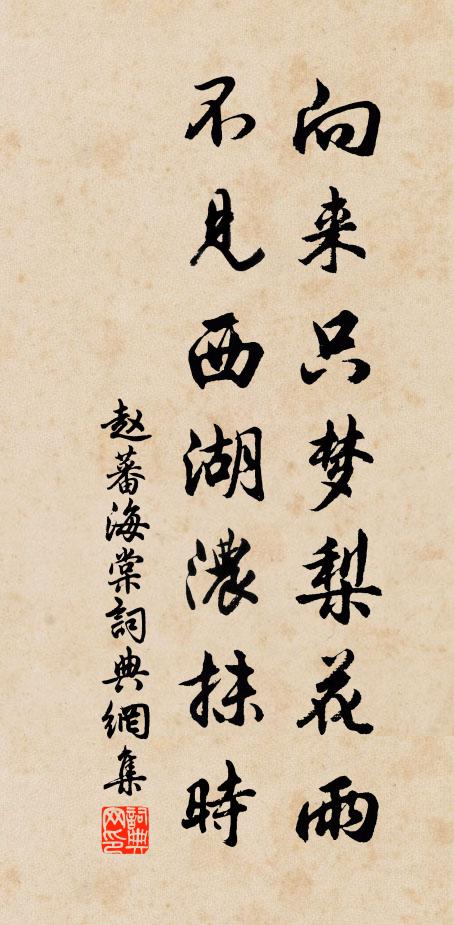 向来只梦梨花雨
不见西湖濃抹時
赵蕃海棠詞典網集
詞典网印